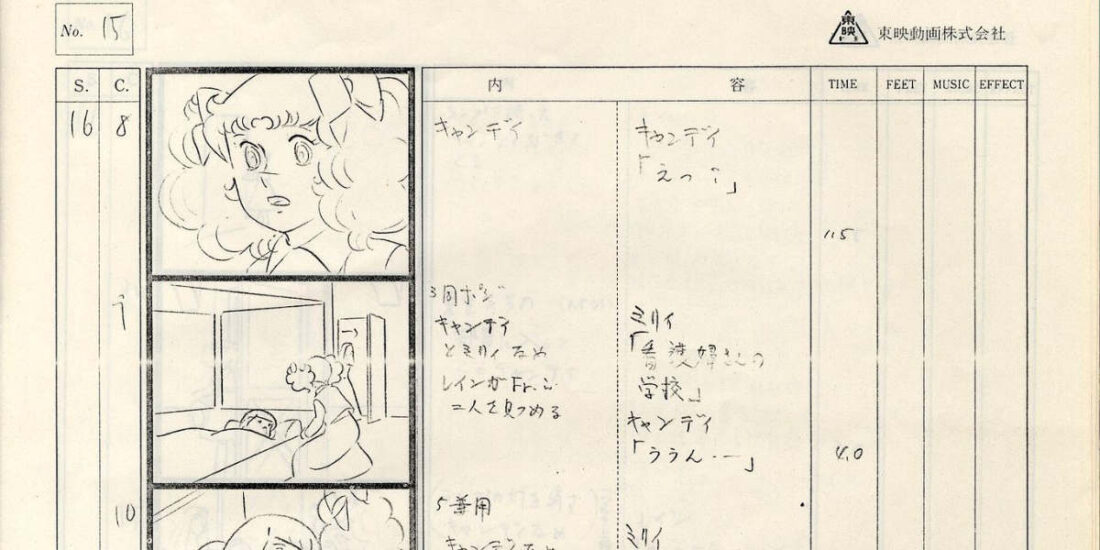 No. 15
東映 東映動画株式会社
S. C. 内容 TIME FEET MUSIC EFFECT
16 8
キャンディ
キャンディ
「えっ?」
1.5
3同ポジ
キャンディ
とミリィなめ
レインがFr.に
二人を見つめる
ミリィ
「看護婦さんの
学校」
キャンディ
「ううん・ー」
4.0
10
5兼用
キャンディなめ
ミリィ